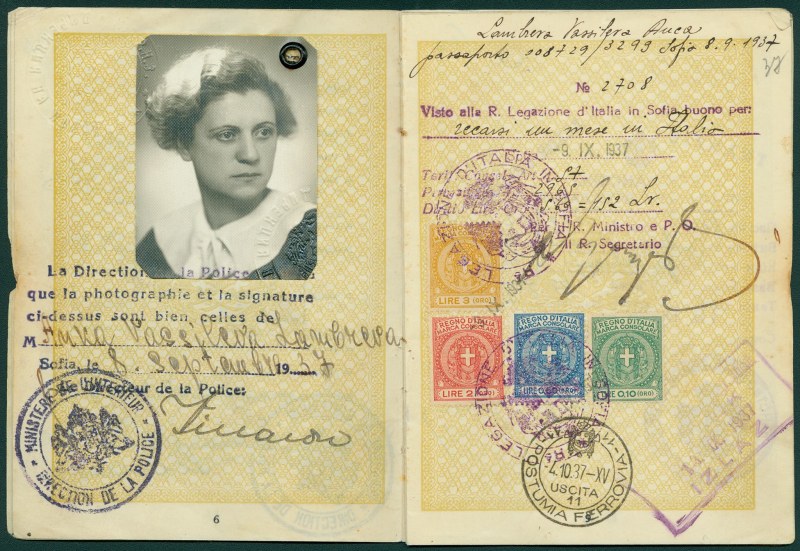 La Direction la Police
que la photographie et la signature
ci-dessus sont bien celles de
M Anna Vassileva Lambreva
Sofia, le 8. septembre 1937
Le Directeur de la Police:
MINISTERE DE L'INTERIEUR
DIRECTION DE LA POLICE
6
Lambreva Vassileva Anca
passaporto 008729/3299 Sofia 8.9.1937
38
№ 2708
Visto alla R. Legazione d'Italia in Sofia buono per:
recarsi un mese in Italia
-9. IX. 1937
= 152 Lv.
p. Il R. Ministro e P. O.
Il R. Segretario
LEGAZIONE D'ITALIA IN SOFIA
LIRE 3 (ORO)
REGNO D'ITALIA
MARCA CONSOLARE
LIRE 2 (ORO)
REGNO D'ITALIA
MARCA CONSOLARE
REGNO D'ITALIA
MARCA CONSOLARE
0.10 (ORO)
LEGAZIONE
-4.10.37-XV
USCITA
11
POSTUMIA FERROVIA
IZLAZ